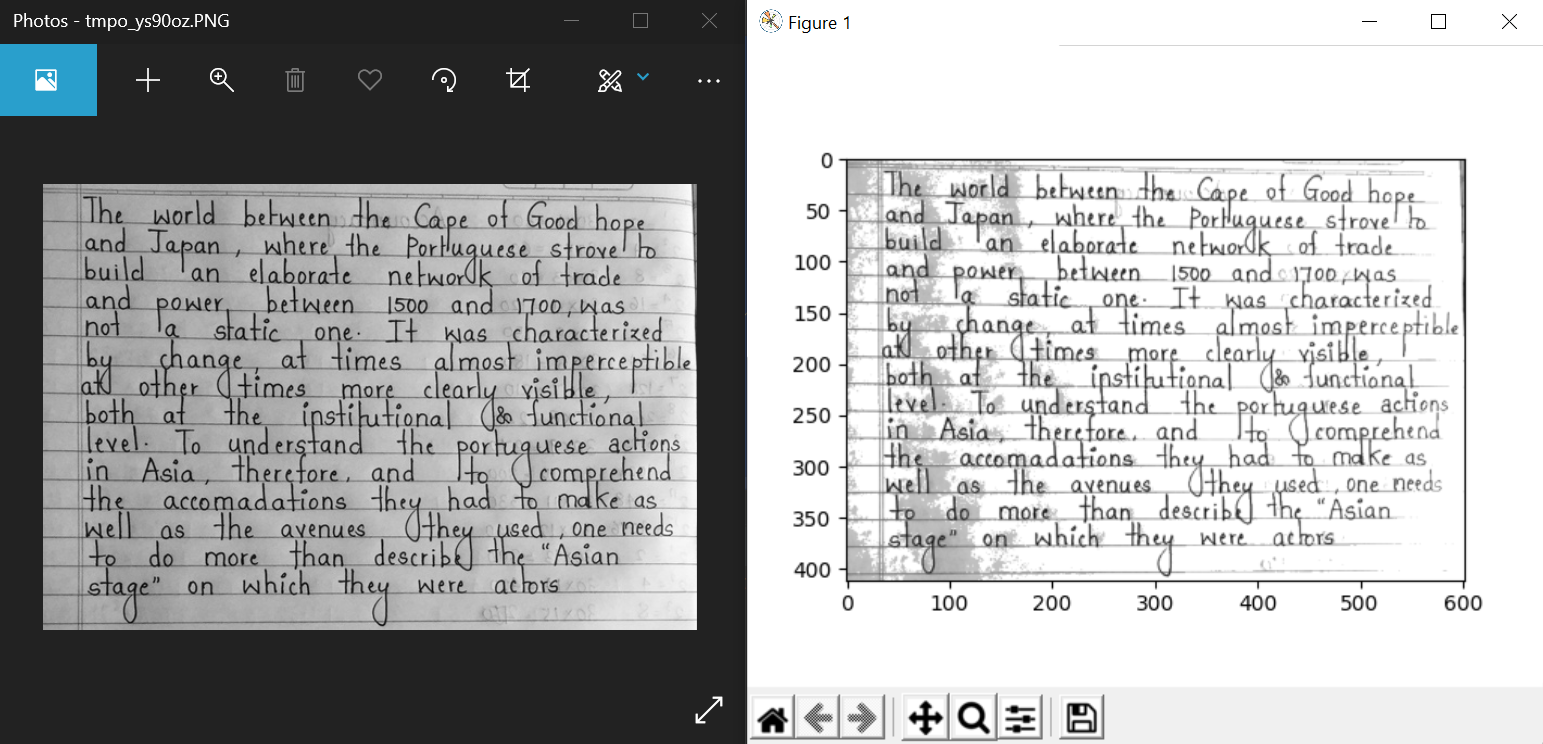 Photos - tmpo_ys90oz.PNG
The world between the Cape of Good hope
and Japan, where the Portuguese strove to
build an elaborate network of trade
and power, between 1500 and 1700, was
not a static one. It was characterized
by change, at times almost imperceptible
at other times more clearly visible,
both at the institutional & functional
level. To understand the portuguese actions
in Asia, therefore, and to comprehend
the accomadations they had to make as
well as the avenues they used, one needs
to do more than describe the "Asian
stage" on which they were actors
Figure 1
The world between the Cape of Good hope
and Japan, where the Portuguese strove to
build an elaborate network of trade
and power, between 1500 and 1700, was
not a static one. It was characterized
by change, at times almost imperceptible
at other times more clearly visible,
both at the institutional & functional
level. To understand the portuguese actions
in Asia, therefore, and to comprehend
the accomadations they had to make as
well as the avenues they used, one needs
to do more than describe the "Asian
stage" on which they were actors
0
50
100
150
200
250
300
350
400
0 100 200 300 400 500 600